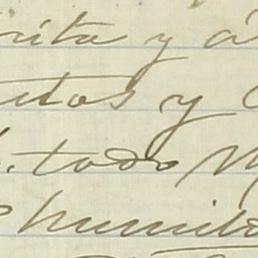 rita y á
utos y
todo M
humild